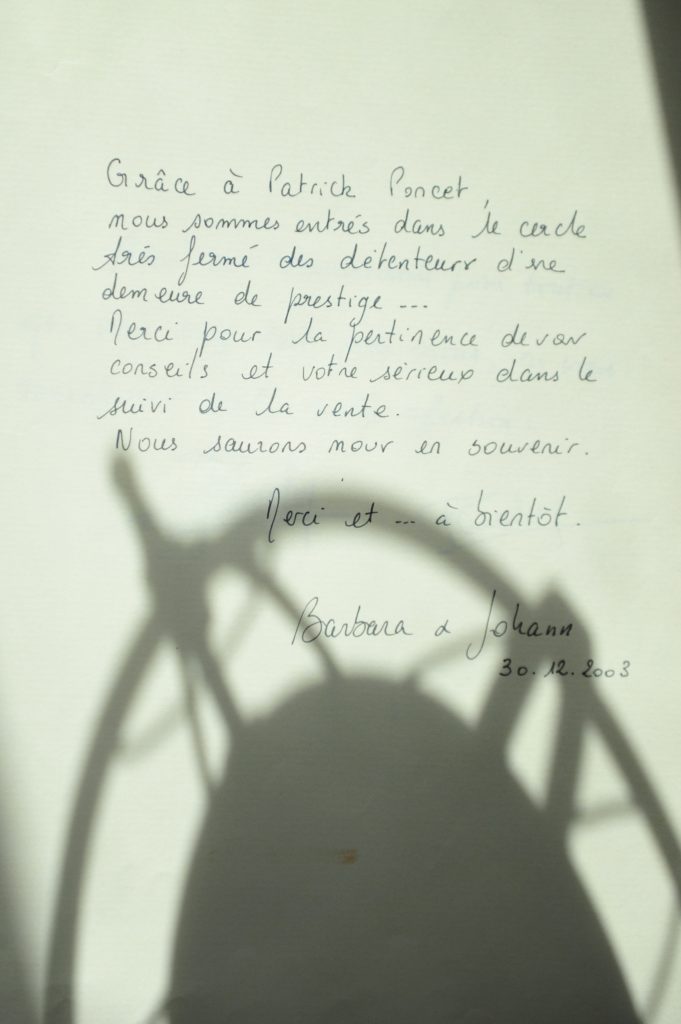 Grâce à Patrick Poncet,
nous sommes entrés dans le cercle
très fermé des détenteurs d'une
demeure de prestige ...
Merci pour la pertinence de vos
conseils et votre sérieux dans le
suivi de la vente.
Nous saurons nous en souvenir.
Merci et ... à bientôt.
Barbara & Johann
30.12.2003